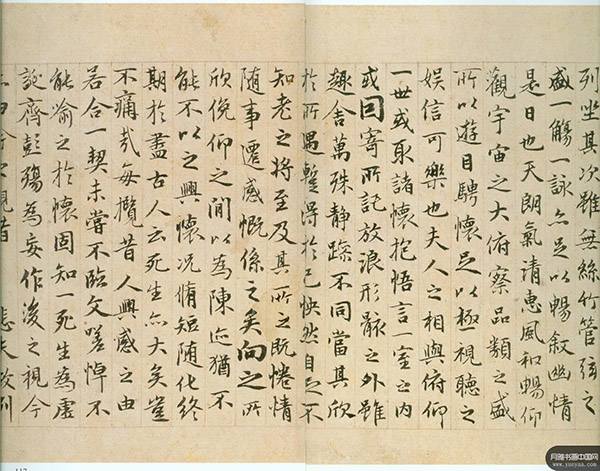 列坐其次雖無絲竹管弦之
盛一觴一詠亦足以暢敘幽情
是日也天朗氣清惠風和暢仰
觀宇宙之大俯察品類之盛
所以遊目騁懷足以極視聽之
娛信可樂也夫人之相與俯仰
一世或取諸懷抱悟言一室之內
或因寄所託放浪形骸之外雖
趣舍萬殊靜躁不同當其欣
於所遇暫得於己怏然自足不
知老之將至及其所之既惓情
隨事遷感慨係之矣向之所
欣俛仰之閒以為陳迹猶不
能不以之興懷況脩短隨化終
期於盡古人云死生亦大矣豈
不痛哉每攬昔人興感之由
若合一契未嘗不臨文嗟悼不
能喻之於懷固知一死生為虛
誕齊彭殤為妄作後之視今
由今之視昔 悲夫故列
117
月雅书画中国网
www.yueyaa.com